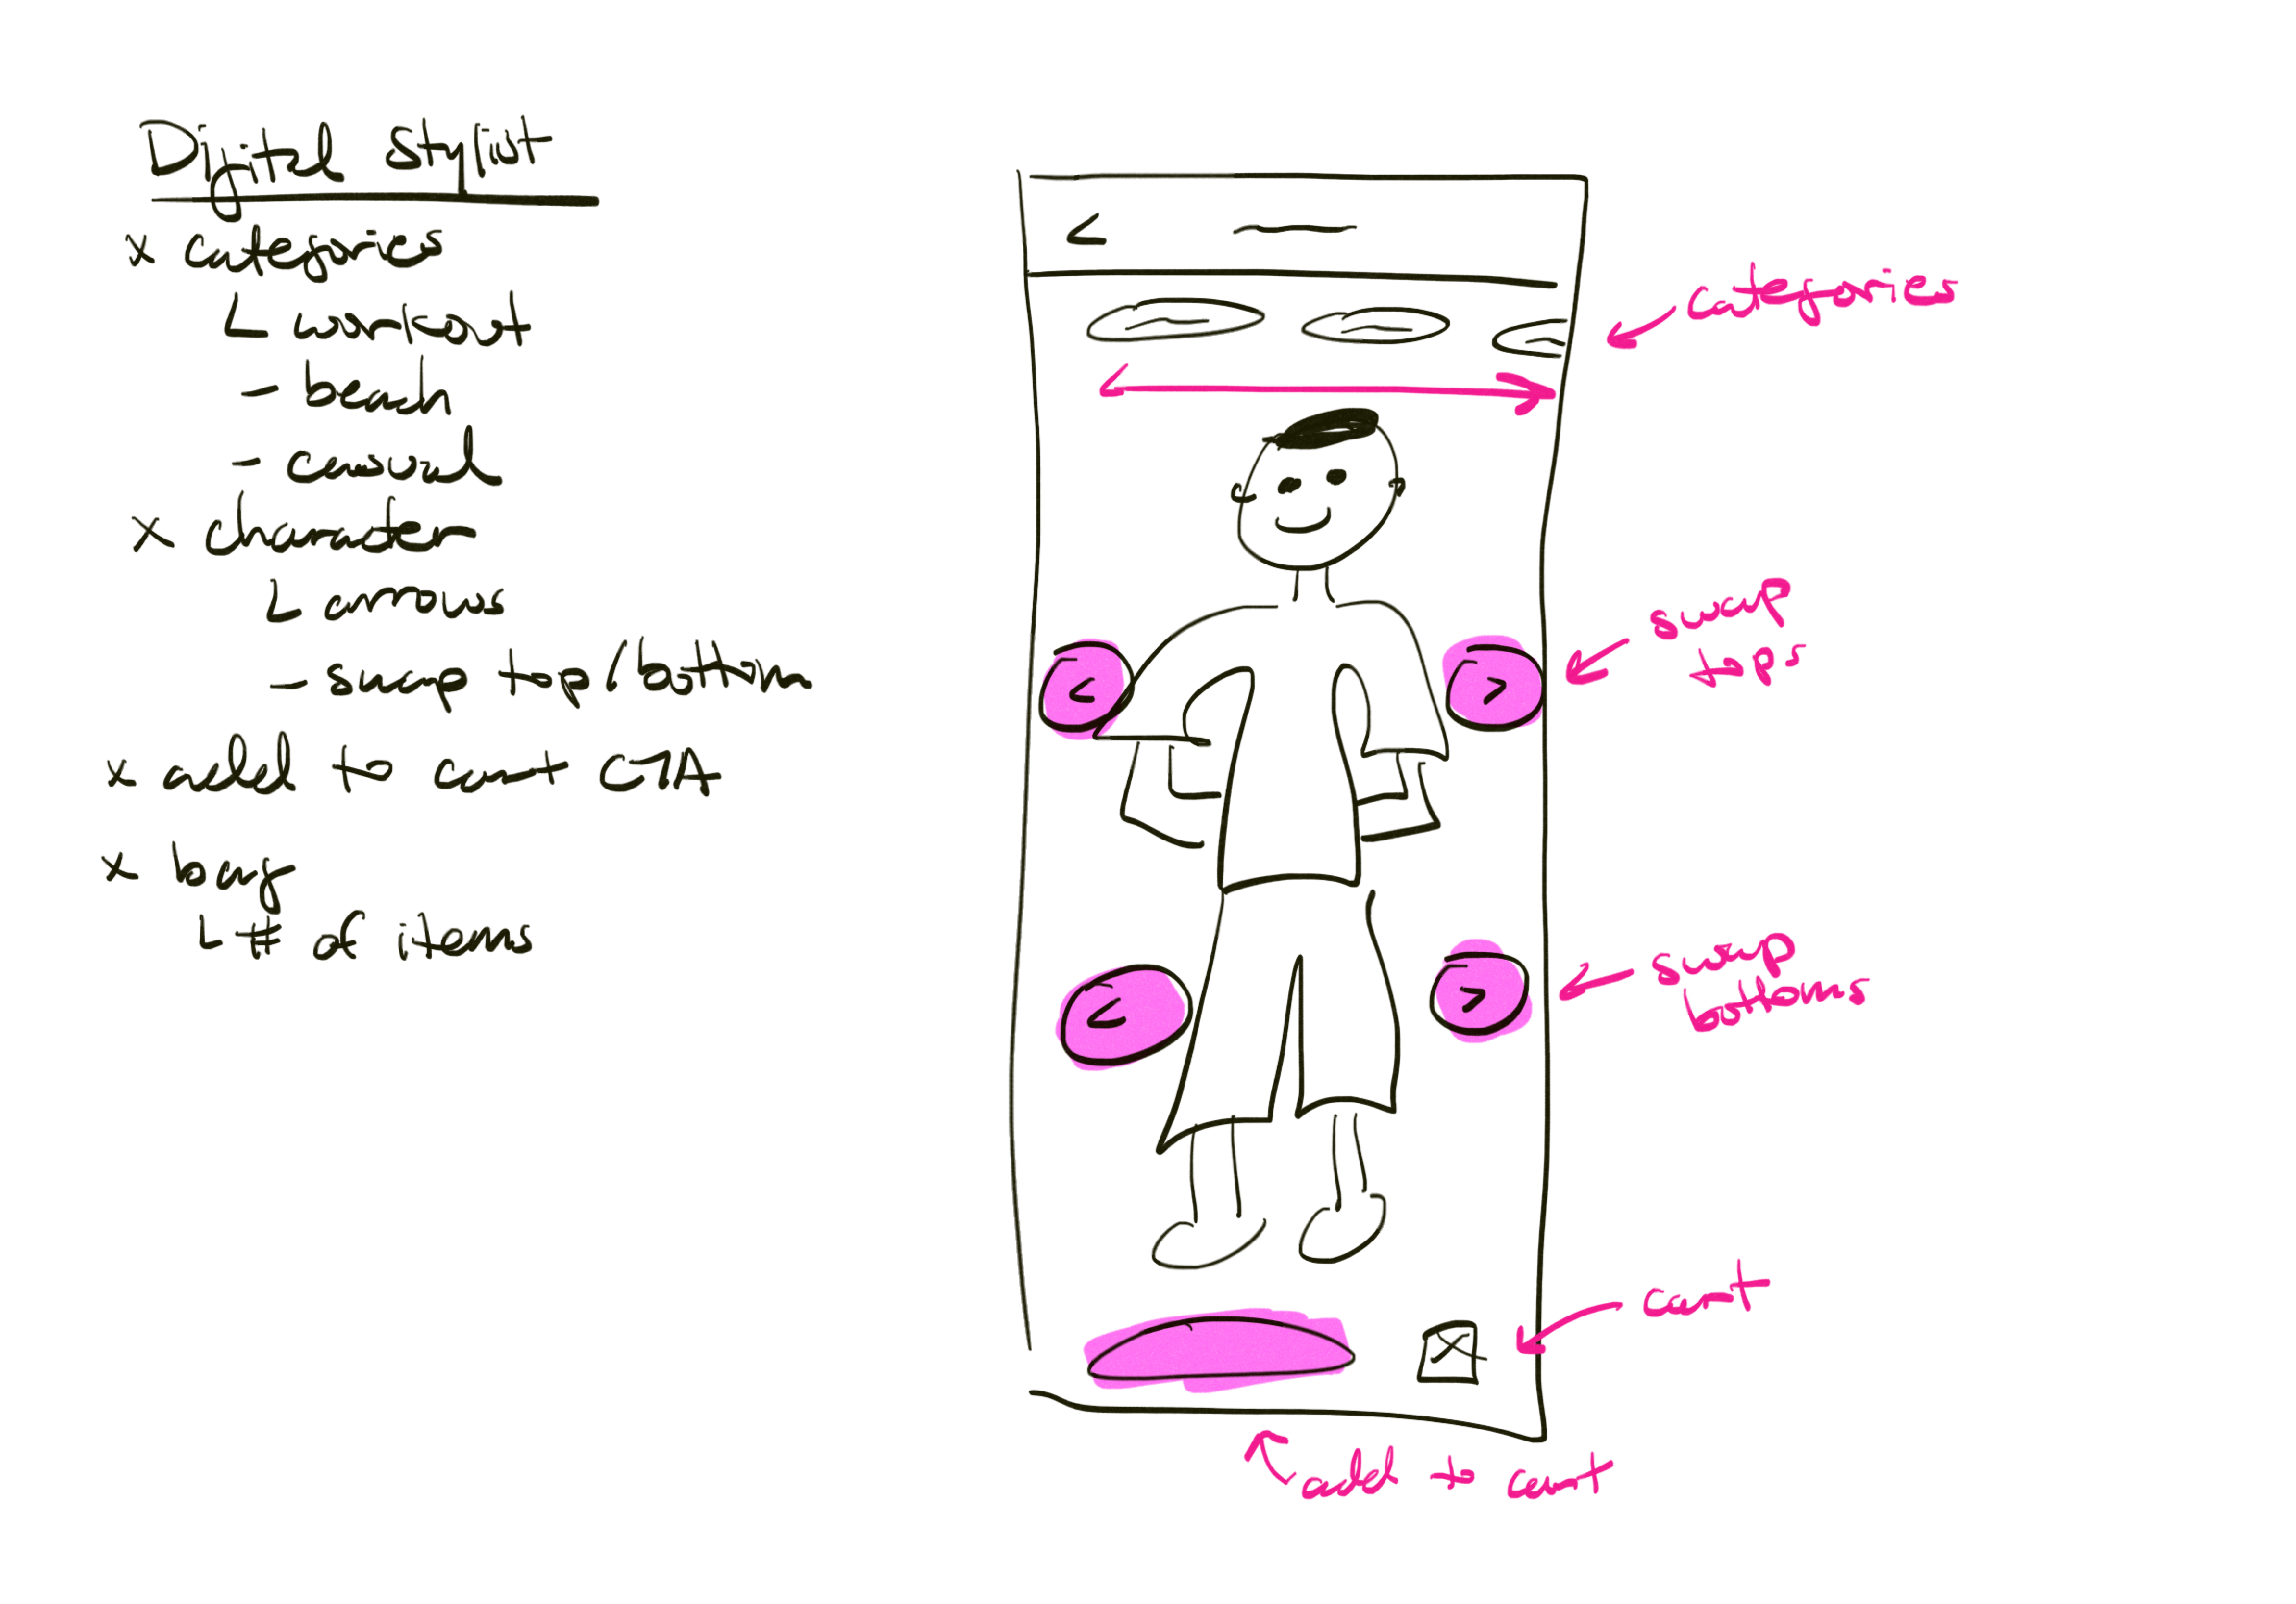 Digital Stylist
x categories
L workout
- beach
- casual
x character
L arrows
- swap top/bottom
x add to cart CTA
x bag
L # of items
<
categories
<
>
swap
tops
<
>
swap
bottoms
cart
add to cart